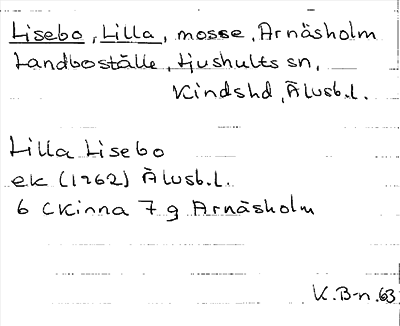 Lisebo, Lilla, mosse, Arnäsholm
Landboställe, Ljushults sn,
Kindshd, Älvsb.l.
Lilla Lisebo
ek (1962) Älvsb.l.
6 C Kinna 7 g Arnäsholm
K.B-n.63